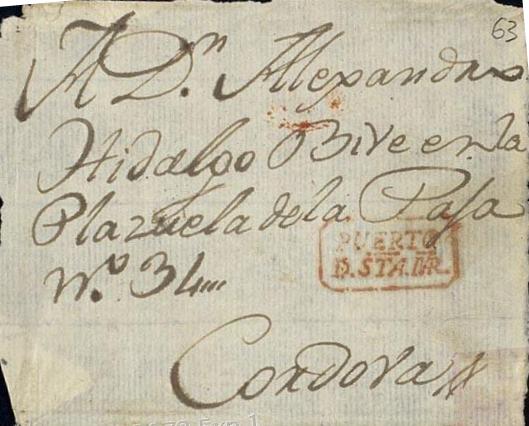 63
A D.n Alexandro
Hidalgo Bive en la
Plazuela de la Paja
N.º 34
PUERTO
D. STA. MR.
Cordova